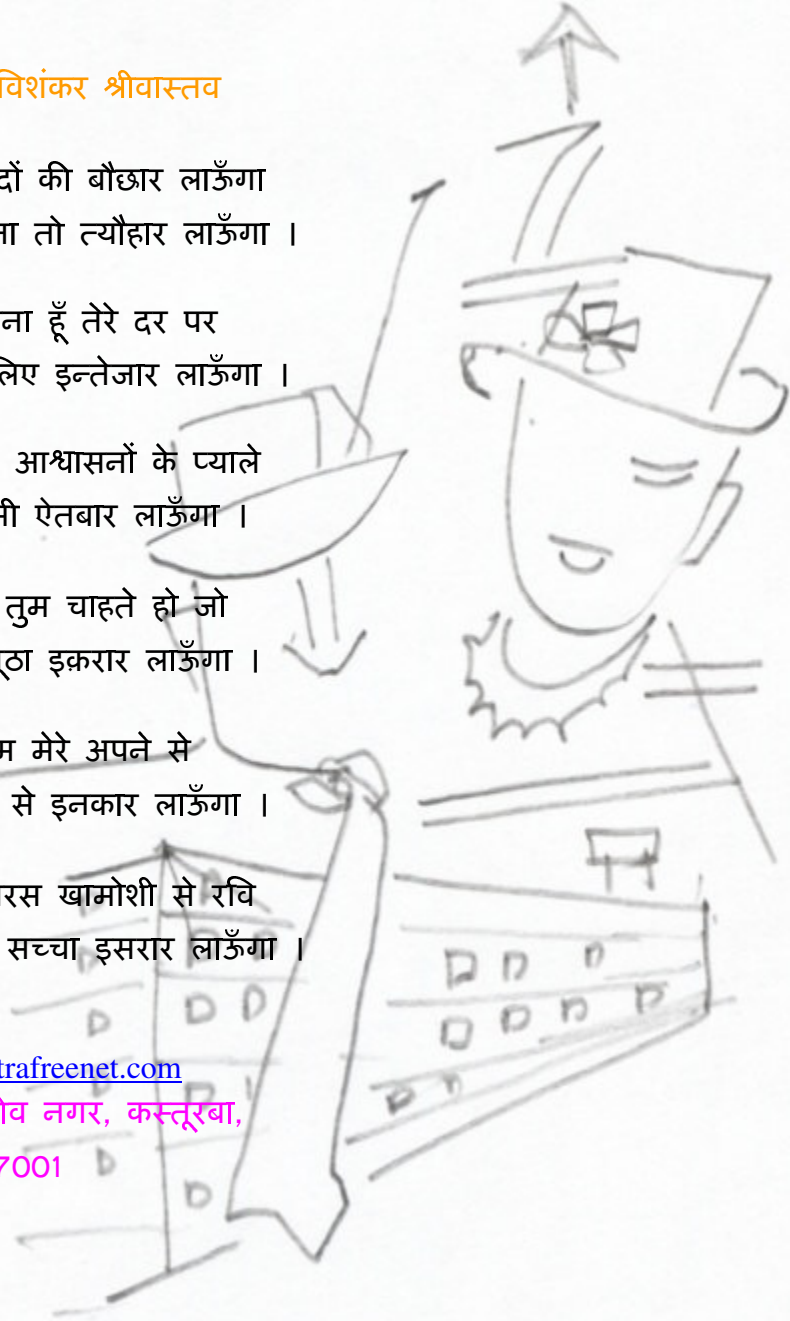 विशंकर श्रीवास्तव
दों की बौछार लाऊँगा
तो त्यौहार लाऊँगा ।
ना हूँ तेरे दर पर
लिए इन्तेजार लाऊँगा ।
आश्वासनों के प्याले
ऐतबार लाऊँगा ।
तुम चाहते हो जो
ूठा इक़रार लाऊँगा ।
म मेरे अपने से
से इनकार लाऊँगा ।
रस खामोशी से रवि
सच्चा इसरार लाऊँगा ।
trafreenet.com
व नगर, कस्तूरबा,
7001